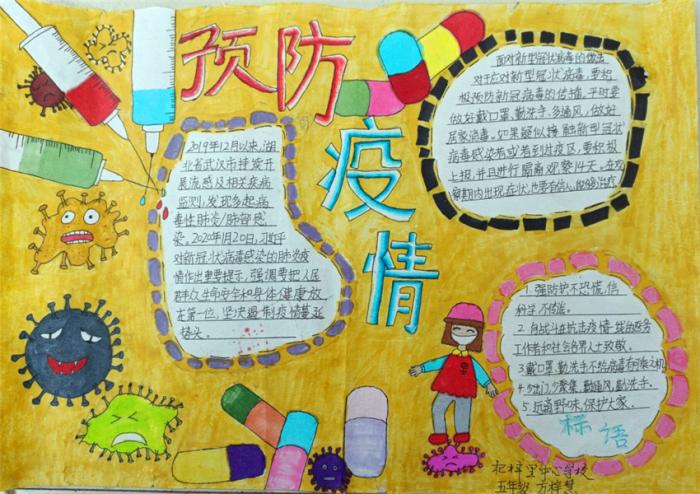 预防
疫情
2019年12月以来,湖
北省武汉市持续开
展流感及相关疾病
监测,发现多起病
毒性肺炎
染。2020年1月20日,习近平
对新冠状病毒感染的肺炎疫
情作出重要指示,强调要把人民
群众生命安全和身体健康放
在第一位,坚决遏制疫情蔓延
势头。
面对新型冠状病毒的做法
对于应对新型冠状病毒,要积
极预防新冠病毒的传播,平时要
做好戴口罩,勤洗手,多通风,做好
居家消毒,如果疑似接触新型冠状
病毒感染者或者到过疫区,要积极
上报,并且进行隔离观察14天。在观
察期内出现症状,也要有信心,
1.强防护不恐慌,信
科学不传谣。
2.向战斗在抗击疫情一线的医务
工作者和社会各界人士致敬。
3.戴口罩,勤洗手不给病毒
4.少出门,少聚集,勤通风,勤洗手。
5.抗高野味,保护大家。
标语
中心学校
五年级 方梓慧